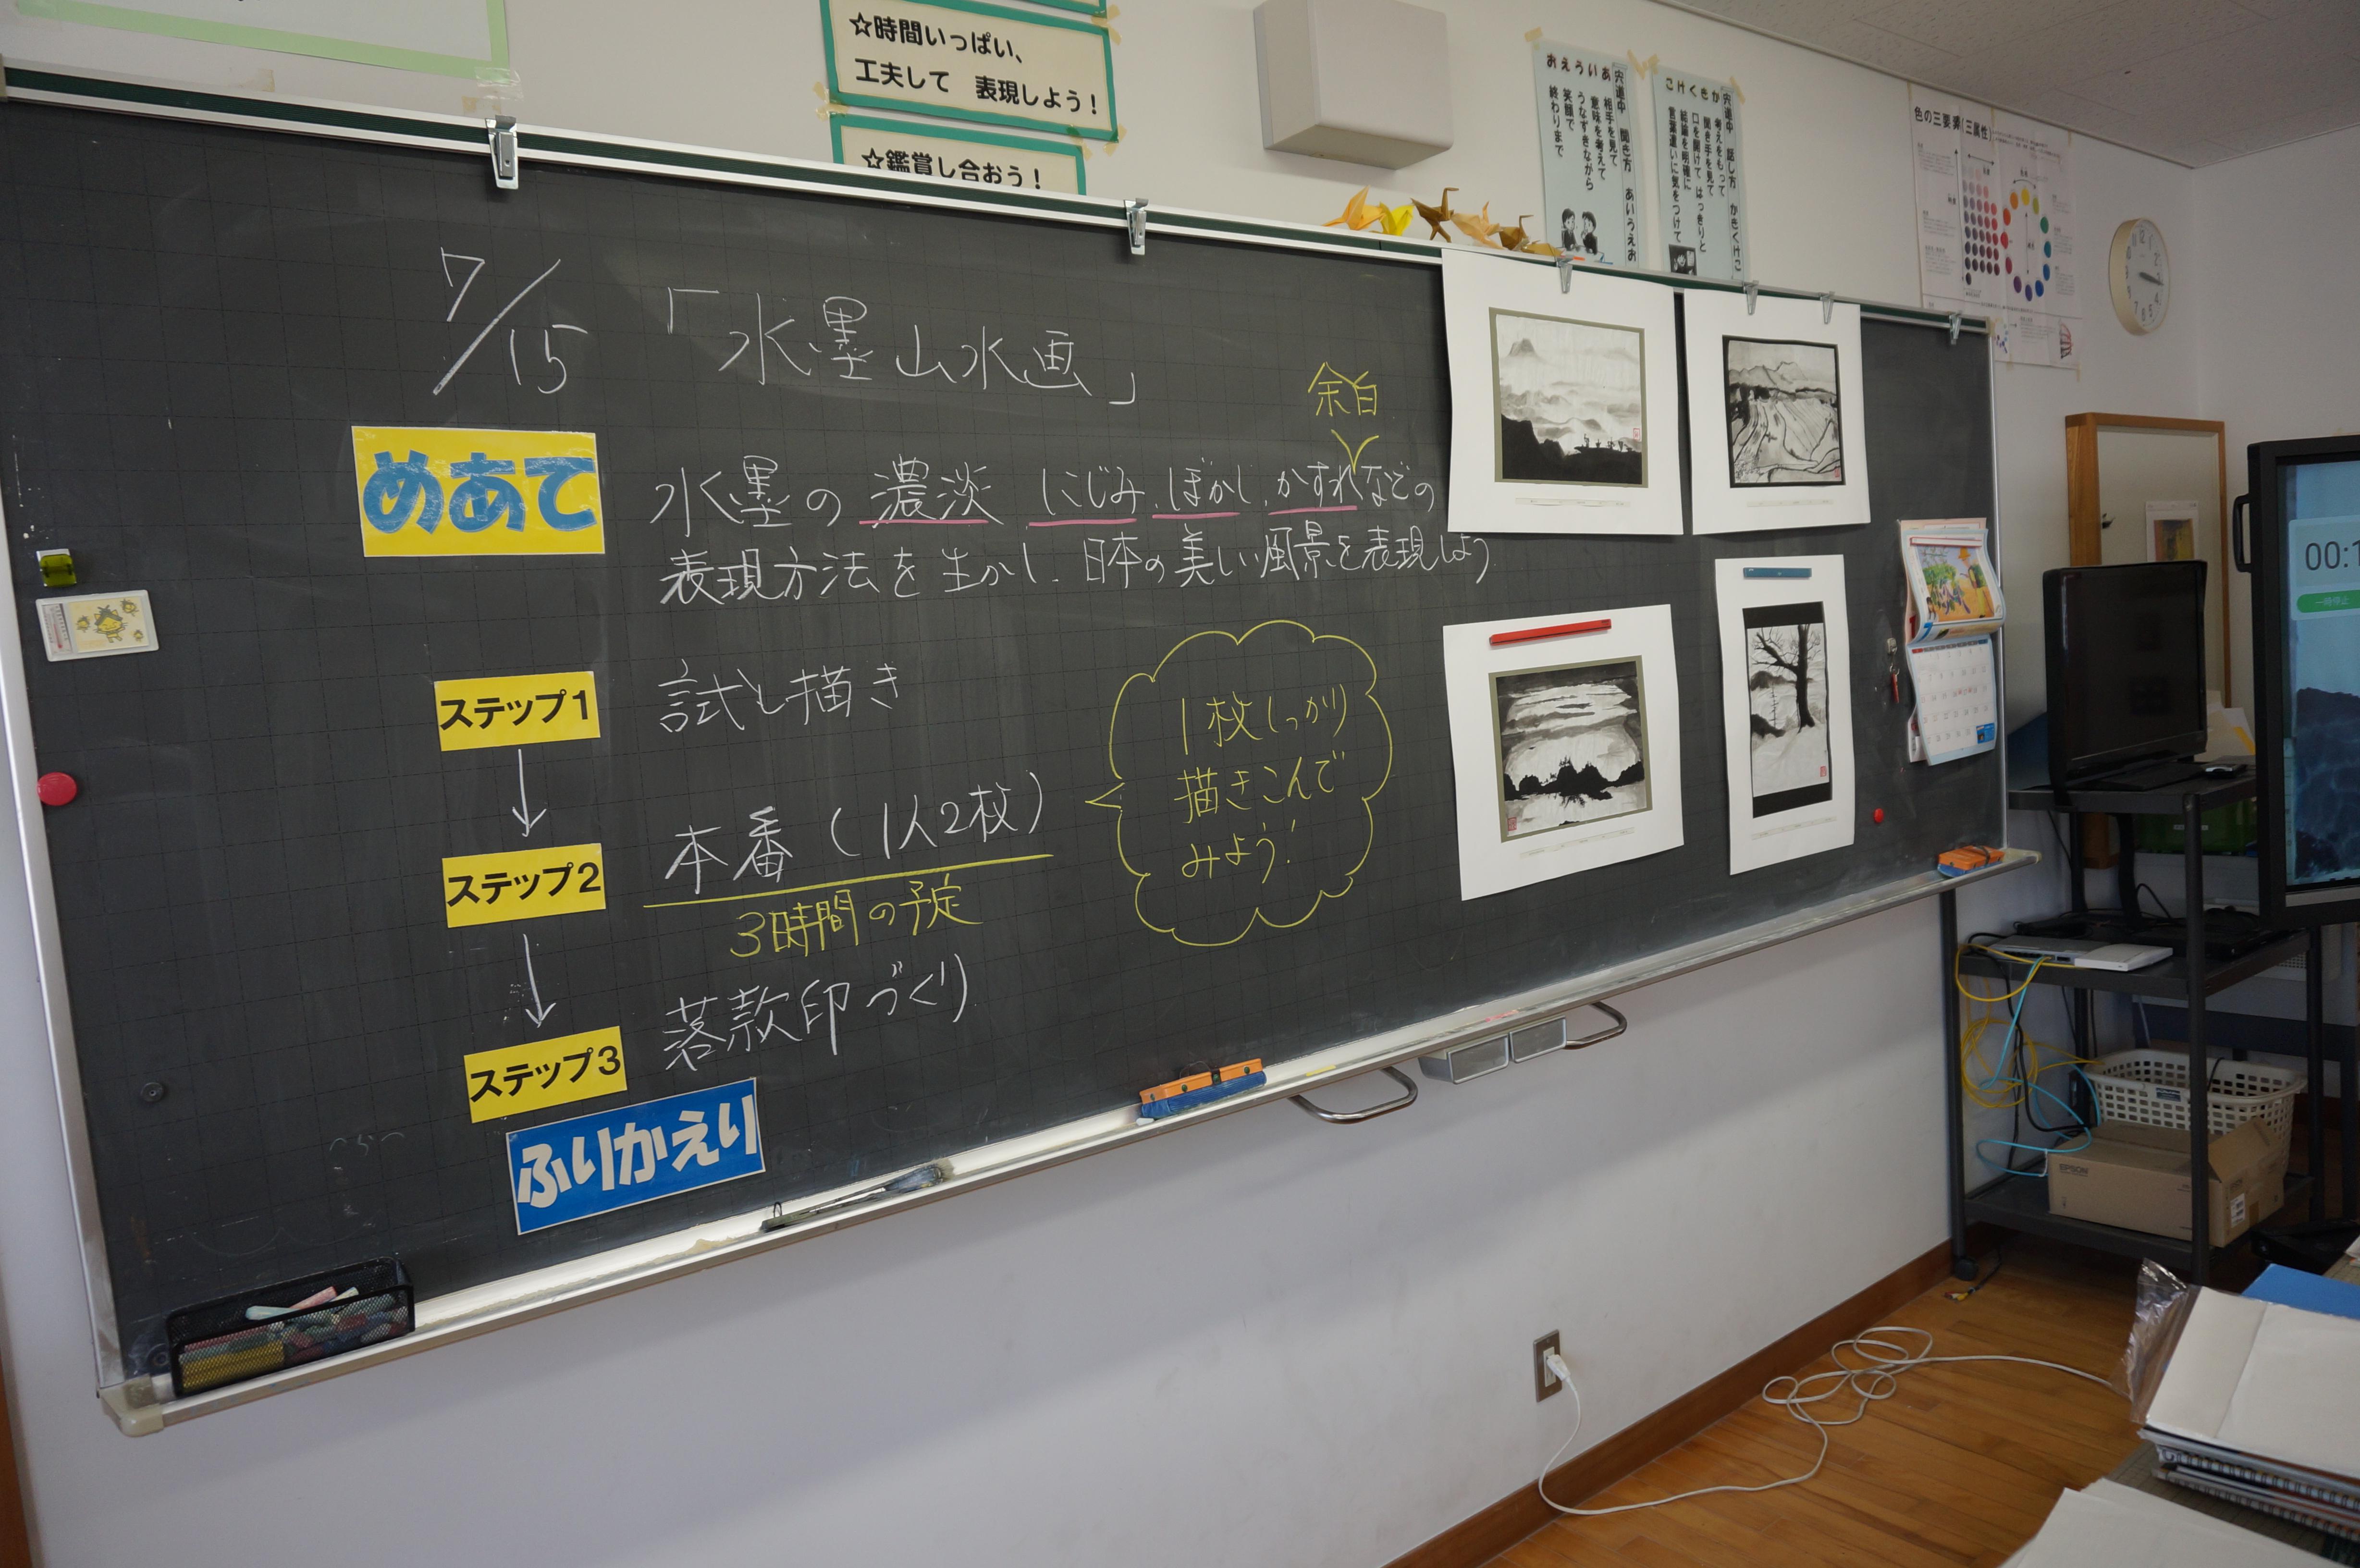 ☆時間いっぱい、
工夫して 表現しよう！
☆鑑賞し合おう！
宍道中 聞き方 あいうえお
あ 相手を見て
い 意味を考えて
う うなずきながら
え 笑顔で
お 終わりまで
宍道中 話し方 かきくけこ
か 考えをもって
き 聞き手を見て
く 口を開けて はっきりと
け 結論を明確に
こ 言葉遣いに気をつけて
色の三要素(三属性)
7/15 「水墨山水画」
余白
めあて
水墨の濃淡、にじみ、ぼかし、かすれなどの
表現方法を生かし、日本の美しい風景を表現しよう
ステップ1 試し描き
ステップ2 本番（1人2枚）
3時間の予定
1枚しっかり
描きこんで
みよう！
ステップ3 落款印づくり
ふりかえり
00:1
一時停止
EPSON